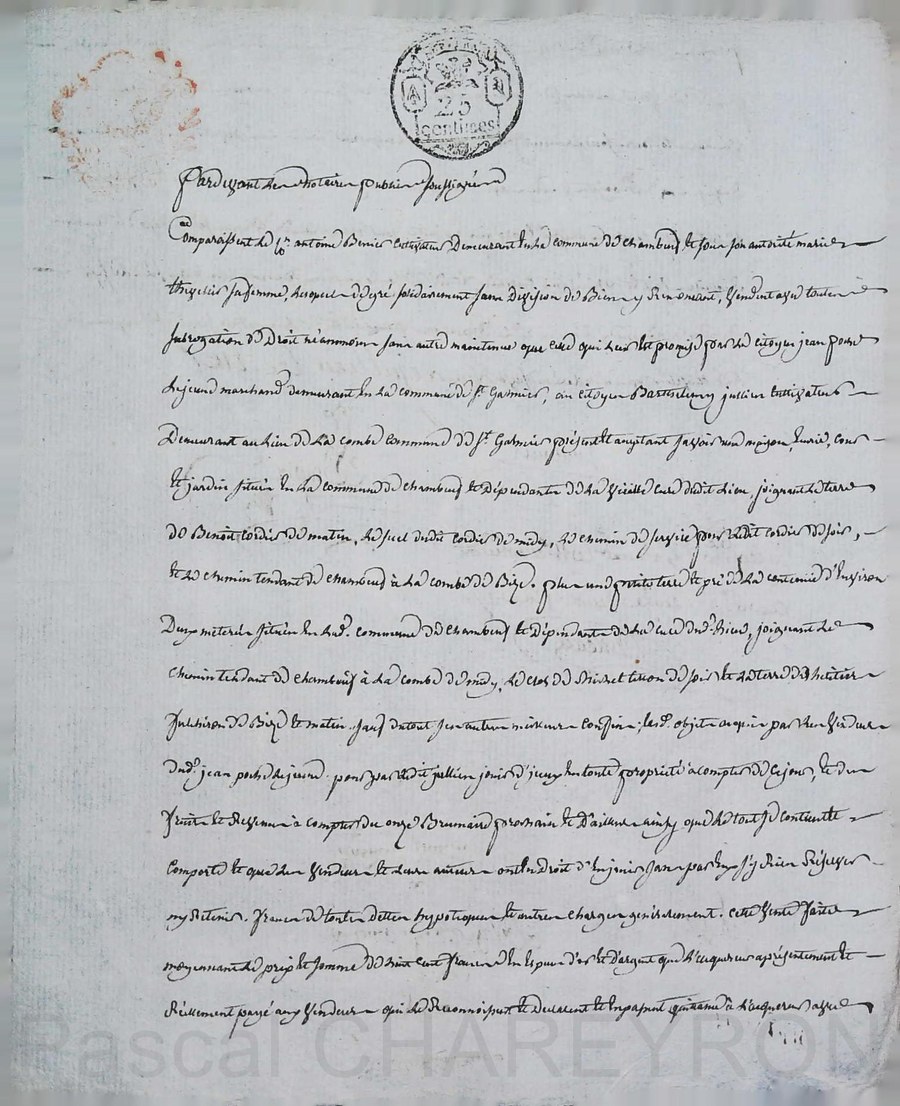 25
centimes
Pardevant les notaires publics soussignés
Comparaissent le Cen antoine Bernier Cultivateur Demeurant en la commune de chambeuf et sous son autorité marie
sa femme, lesquels de gré solidairement sans Division de Bien y Renonçant, Vendent avec toute
subrogation de Droit néanmoins sans autre maintenue que celle qui leur est promise par le citoyen jean
Lejeune marchand demeurant en la commune de st Galmier, au citoyen Barthelemy jullien Cultivateur
Demeurant au lieu de la combe Commune de st Galmier présent et acceptant savoir une maison, Ecurie, cour
et jardin situés en la commune de chambeuf et Dépendante de la Vieille cure dudit Lieu, joignant la terre
de Benoit Cordier de matin, le suel dudit Cordier de midy, le chemin de service pour ledit Cordier de soir,
et le chemin tendant de chambeuf à la combe de Bize. plus une petite terre et pré de la contenue d'Environ
Deux meterées situés en lad. commune de chambeuf et Dépendante de la cure dud. Lieu, joignant le
chemin tendant de chambeuf à la combe de midy, le clos de de soir et la terre des héritiers
de Bize et matin, sauf du tout ses autres meilleurs Confins; lesd. objets acquis par les Vendeurs
dud. jean Lejeune. pour par ledit jullien jouir d'iceux en toute propriété à compter de ce jour, et des
fruits et Revenus à compter du onze Brumaire prochain et D'ailleurs ainsy que le tout se contient et
Comporte et que les Vendeurs et leurs auteurs ont en Droit d'En jouir sans par Eux s'y Rien Réserver
ny Retenir. francs de toutes Dettes hypotèques et autres charges généralement. cette Vente faite
moyennant le prix et somme de huit cent francs En Espèces d'or et d'argent que l'acquereur a présentement et
Réellement payé aux Vendeurs qui le Reconnoissent et Declarent et En passent quittance à l'acquereur avec
Pascal CHAREYRON